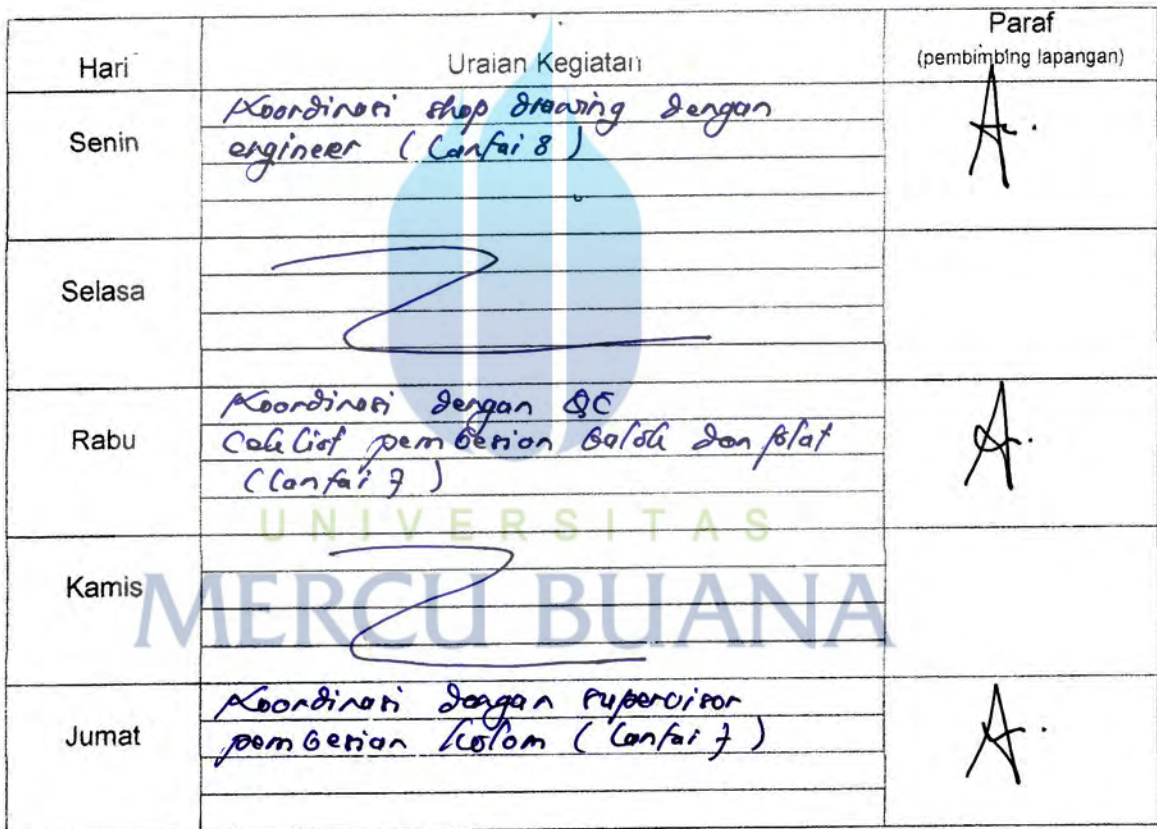 Hari Uraian Kegiatan Paraf
(pembimbing lapangan)
Senin
Koordinasi shop drawing dengan
engineer (Lantai 8)
Selasa
Rabu
Koordinasi dengan QC
Ceklist pembesian balok dan plat
(Lantai 7)
UNIVERSITAS
Kamis
MERCU BUANA
Jumat
Koordinasi dengan supervisor
pembesian kolom (Lantai 7)